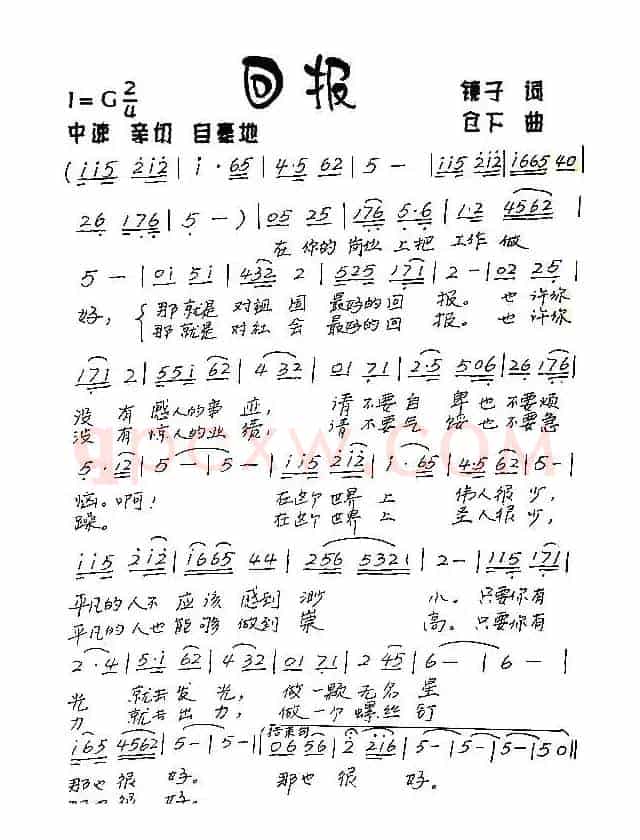 回报
1=G 2/4
镜子 词
中速 亲切 自豪地
仓下 曲
(i i 5 2 i 2 | i · 6 5 | 4·5 6 2 | 5 — | i i 5 2 i 2 | i 6 6 5 4 0 |
2 6 1 7 6 | 5 — ) | 0 5 2 5 | 1 7 6 5·6 | 1·2 4 5 6 2 |
在 你的 岗位 上把 工作 做
5 — | 0 i 5 i | 4 3 2 2 | 5 2 5 1 7 1 | 2 — | 0 2 2 5 |
好, 那 就是 对祖 国 最好的 回 报。 也 许你
那 就是 对社 会 最好的 回 报。 也 许你
1 7 1 2 | 5 5 i 6 2 | 4 3 2 | 0 1 7 1 | 2·5 5 0 6 | 2 6 1 7 6 |
没 有 感人的 事 迹, 请 不要 自 卑 也 不要 烦
没 有 惊人的 业 绩, 请 不要 气 馁 也 不要 急
5 · 1 2 | 5 — | 5 — | i i 5 2 i 2 | i · 6 5 | 4·5 6 2 | 5 — |
恼。啊! 在这个 世界 上 伟人 很 少,
躁。 在这个 世界 上 圣人 很 少,
i i 5 2 i 2 | i 6 6 5 4 4 | 2 5 6 5 3 2 1 | 2 — | 1 1 5 1 7 1 |
平凡的 人不 应该 感到 渺 小。 只要你 有
平凡的 人也 能够 做到 崇 高。 只要你 有
2 · 4 | 5·i 6 2 | 4 3 2 | 0 1 7 1 | 2 4 5 | 6 — | i — |
光 就去 发 光, 做 一颗 无名 星
力 就去 出 力, 做 一个 螺丝 钉
i 6 5 4 5 6 2 | 5 — | 5 — | 结束句 0 6 5 6 | 2 2 i 6 | 5 — | 5 — | 5 — | 5 0 ‖
那也 很 好。 那也 很 好。
那也 很 好。